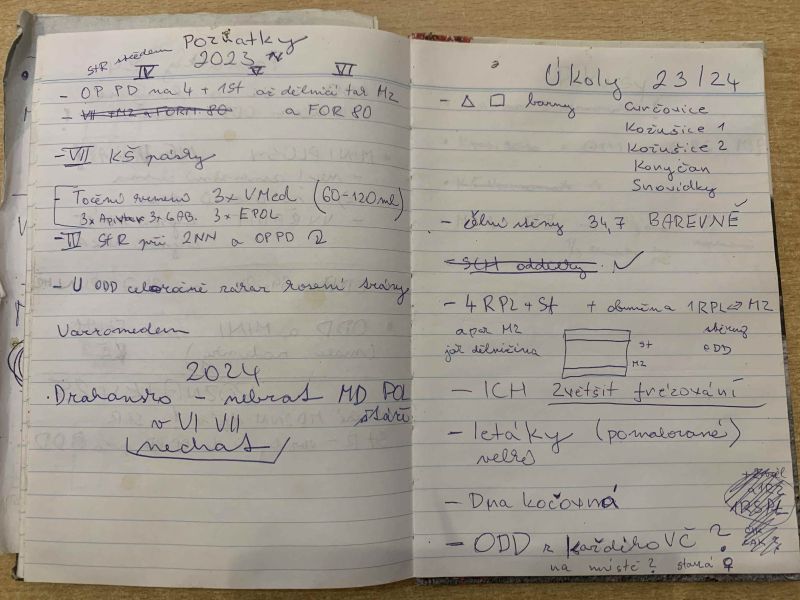 Poznatky
StR středem 2023
IV V VI
- OP PD na 4 + 1st až dělničí tar M2
- VII + M2 a FORM. 80 a FOR 80
- VII KŠ pásry
- Točení ramena 3x VMed (60-120ml)
3x 3x GAB. 3x EPOL
- III StR při 2NN a OPPD
- U ODD celoročně zárar rosení trávy
Varromedem
2024
· Drahansko - nebrat MD POL
v VI VII stáří
nechat
Úkoly 23/24
- △ □ barvy Curčovice
Kožušice 1
Kožušice 2
Konyčan
Snovídky
- čelní stěny 34,7 BAREVNĚ
SCH oddělky ✓
- 4 RPL + St + obměna 1RPL ⇔ M2
a por M2
jož dělničina
st
M2
ODD
- ICH Zvětšit frézování
- letáky (pomalované)
velké
- Dna kočovná
- ODD z každého VČ ?
na místě? stará ♀